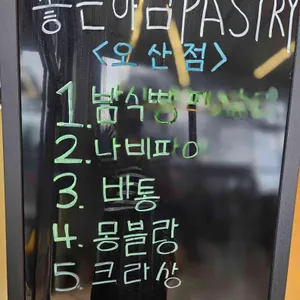 좋은아침PASTRY
<오산점>
1. 밤식빵
2. 나비파이
3. 바통
4. 몽블랑
5. 크라상